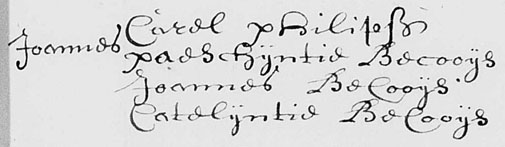 Joannes
Carel philipss
paeschyntie Becooys
Joannes BeCooys
Catelyntie BeCooys